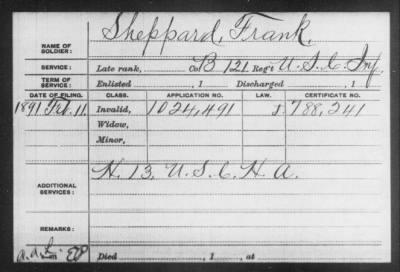 NAME OF SOLDIER: Sheppard, Frank.
SERVICE: Late rank, Co. B, 121 Reg't U.S.C. Inf
TERM OF SERVICE: Enlisted , 1 Discharged , 1
DATE OF FILING. CLASS. APPLICATION NO. LAW. CERTIFICATE NO.
1891 Feb. 11 Invalid, 1024,491 788,241
Widow,
Minor,
ADDITIONAL SERVICES: H. 13. U.S.C.H.A.
REMARKS:
Died , 1 , at